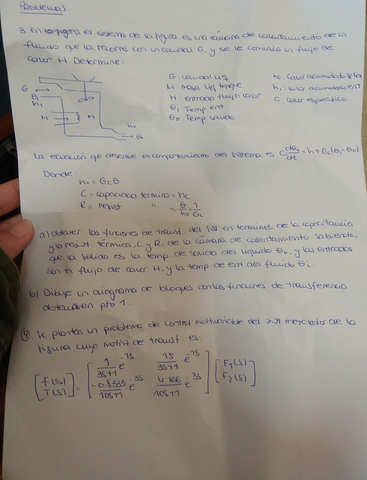 Problemas
3. En la figura el sistema de la figura es una cámara de calentamiento de un
fluido que la recorre con un caudal G, y se le comunica un flujo de
calor H. Determine:
G: caudal liq
M: masa liq tanque
H entrada flujo calor
θi Temp ent
θo Temp salida
ho calor acumulado
hi calor acumulado ent
c calor específico
G →
θi
hi
H →
M
ho
θo
La ecuación que describe el comportamiento del sistema es C dθo/dt = h + G (θi - θo)
Donde:
ho = Gcθ
C = capacidad térmica = Mc
R = resist " = θ/h = 1/Gc
a) obtener las funciones de transf. del sist en términos de la capacitancia
y la resist. térmica, C y R de la cámara de calentamiento sabiendo
que la salida es la temp de salida del líquido θo, y las entradas
son el flujo de calor H, y la temp de ent del fluido θi.
b) Dibuje un diagrama de bloques con las funciones de transferencia
obtenida en pto 1.
4. Se plantea un problema de control multivariable del sist mezclador de la
figura cuya matriz de transf. es:
[F(s) T(s)] = [1/3s+1 e^-7s 15/3s+1 e^-7s
-0.8333/10s+1 e^-3s 4.166/10s+1 e^-3s] [F1(s) F2(s)]